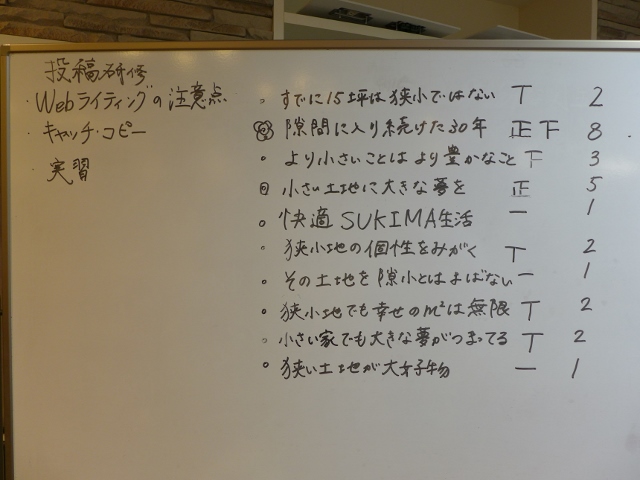 投稿研修
・Webライティングの注意点
・キャッチ・コピー
・実習
。すでに15坪は狭小ではない 丅 2
隙間に入り続けた30年 正下 8
・より小さいことはより豊かなこと 下 3
小さい土地に大きな夢を 正 5
。快適SUKIMA生活 一 1
。狭小地の個性をみがく 丅 2
。その土地を隙小とはよばない 一 1
。狭小地でも幸せのm²は無限 丅 2
。小さい家でも大きな夢がつまってる 丅 2
。狭い土地が大好物 一 1